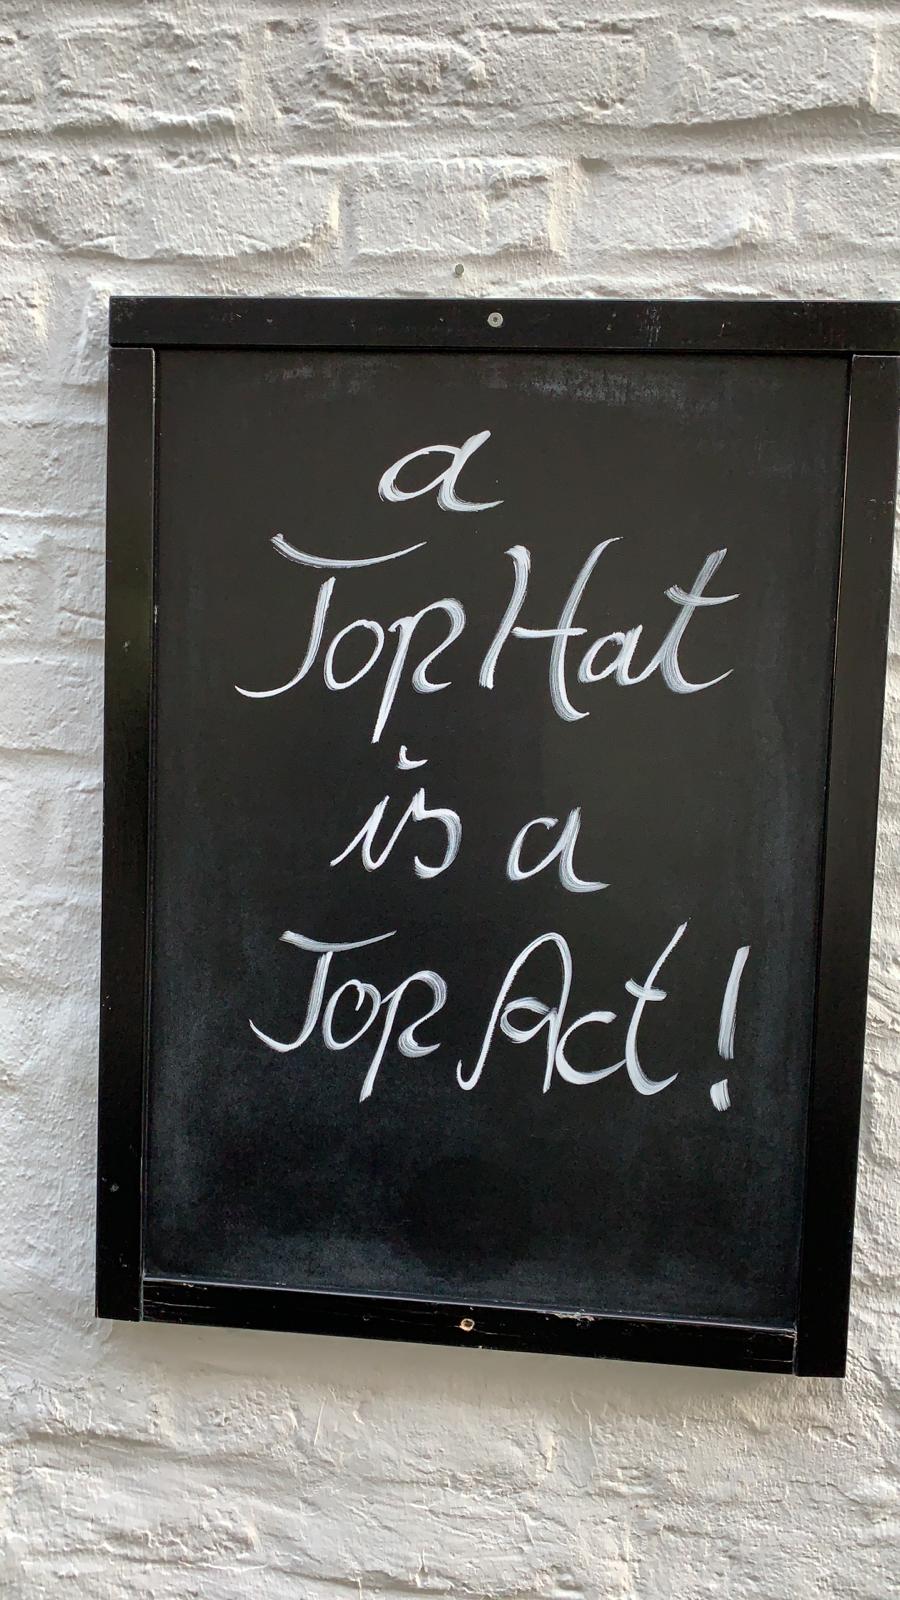 a
Top Hat
is a
Top Act!